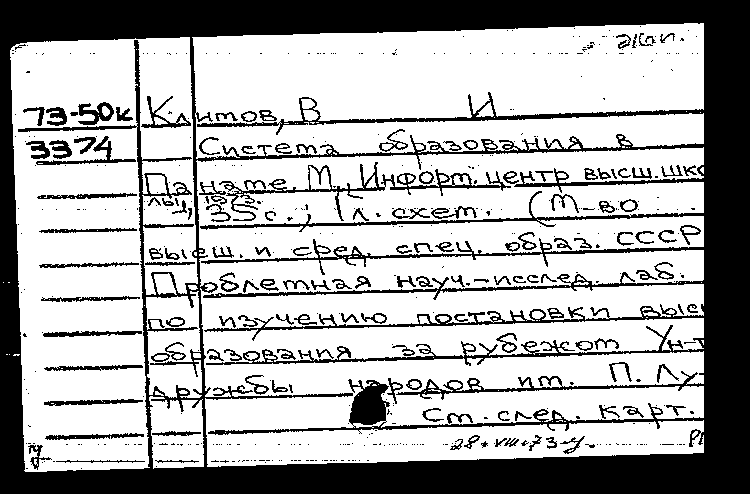 2 кол.
73-50к Климов, В И
3374 Система образования в
Панаме. М., Информ. центр высш. шко
лы, 1973.
35 с.; 1 л. схем. (М-во
высш. и сред. спец. образ. СССР
Проблемная науч.-исслед. лаб.
по изучению постановки высш
образования за рубежом Ун-т
дружбы народов им. П. Лу-
См. след. карт.
28.VIII.73-у.